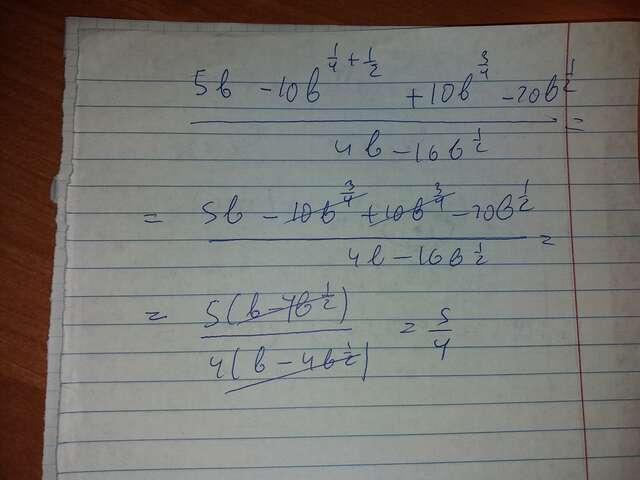 5b - 10b^{1/4 + 1/2} + 10b^{3/4} - 20b^{1/2}
4b - 16b^{1/2} =
= 5b - 10b^{3/4} + 10b^{3/4} - 20b^{1/2}
4b - 16b^{1/2} =
= 5(b - 4b^{1/2})
4(b - 4b^{1/2}) = 5/4